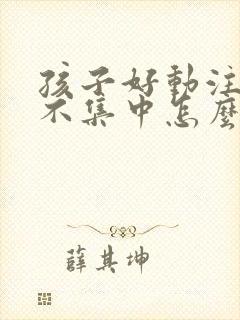 孩子好動注
不集中怎麼
薛其坤